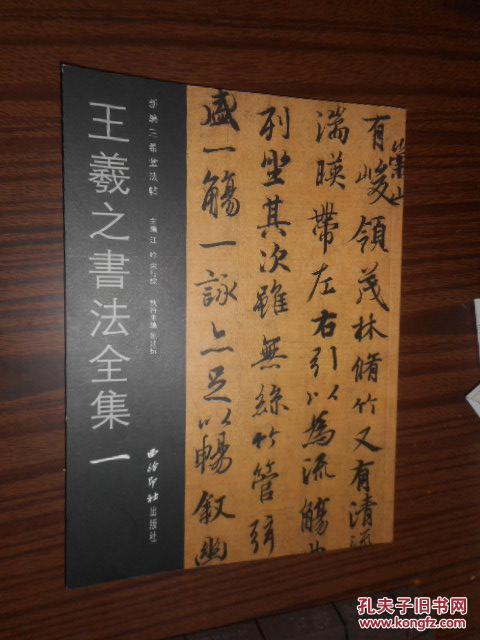 王羲之書法全集 一
新編三希堂法帖
西泠印社出版社
崇山
有峻領茂林脩竹又有清流
湍暎帶左右引以為流觴曲
列坐其次雖無絲竹管弦
盛一觴一詠亦足以暢叙幽
孔夫子旧书网
www.kongfz.com